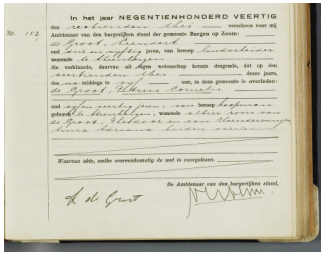 In het jaar NEGENTIENHONDERD VEERTIG
den veertienden Mei verscheen voor mij
Nr. 112 Ambtenaar van den burgerlijken stand der gemeente Bergen op Zoom:
de Groot, Leendert
oud drie en vijftig jaren, van beroep landarbeider
wonende te Steenbergen
die verklaarde, daarvan uit eigen wetenschap kennis dragende, dat op den
veertienden Mei dezes jaars,
des na middags te vijf uur, in deze gemeente is overleden:
de Groot, Petrus Cornelis
oud jaren, van beroep koopman
geboren te Steenbergen, wonende aldaar zoon van
de Groot, en van
Anna Adriana beiden overleden
Waarvan akte, welke overeenkomstig de wet is voorgelezen.
De Ambtenaar van den burgerlijken stand,
L de Groot